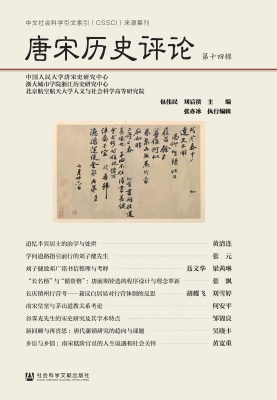 中文社会科学引文索引（CSSCI）来源集刊
唐宋历史评论 第十四辑
中国人民大学唐宋史研究中心
浙大城市学院浙江历史研究中心
北京航空航天大学人文与社会科学高等研究院
包伟民 刘后滨 主 编
张亦冰 执行编辑
追忆半宾居士的治学与处世 黄清连
学问道路指引前行的刘子健先生 张 元
刘子健致邓广铭书信整理与考释 聂文华 梁燕琳
“长名榜”与“循资格”：唐前期铨选的程序设计与理念革新 张 飘
长庆镇州行营考——兼议白居易对行营体制的反思 胡耀飞 刘雪婷
南宋皇室与茅山道教关系考论 何安平
谷霁光先生的宋史研究及其学术特点 邹锦良
新回顾与再省思：唐代藩镇研究的趋向与课题 吴晓丰
乡宦与乡情：南宋低阶官员的人生境遇和社会关怀 黄宽重
社会科学文献出版社